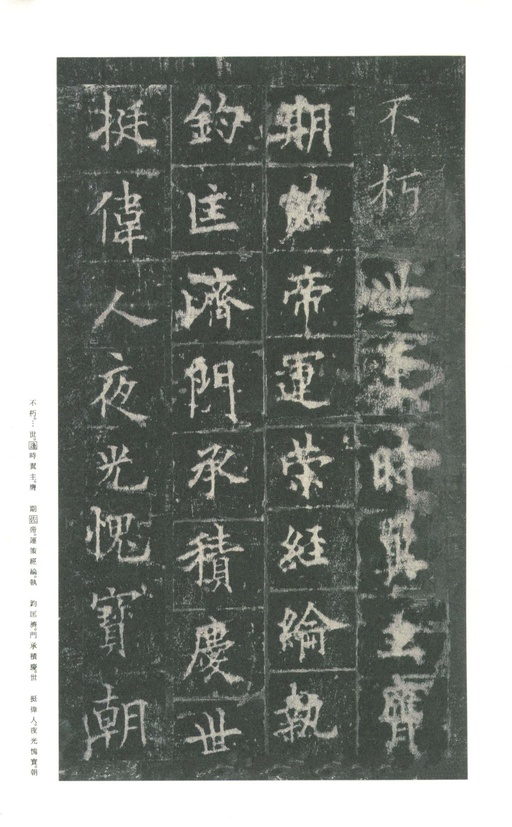 不朽世時翼主膺
期帝運策經綸執
鈞匡濟門承積慶世
挺偉人夜光愧寶朝
不朽。…世逢時翼主。膺　期佐帝。運策經綸。執　鈞匡濟。門承積慶。世　挺偉人。夜光愧寶。朝